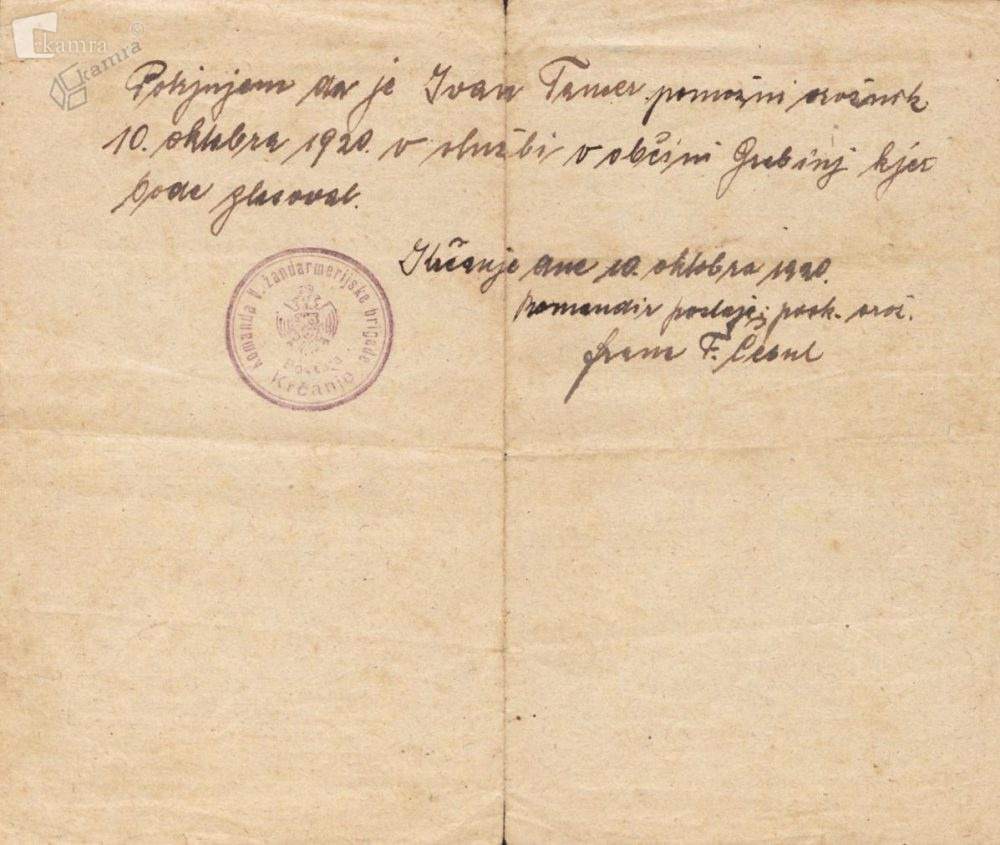 kamra
kamra
Potrjujem da je Ivan Tamer pomožni orožnik
10. oktobra 1920. v službi v občini Grebinj kjer
bode glasoval.
Krčanje dne 10. oktobra 1920.
komandir postaje: orož.
Franc F.
Komanda V. žandarmerijske brigade
Postaja
Krčanje